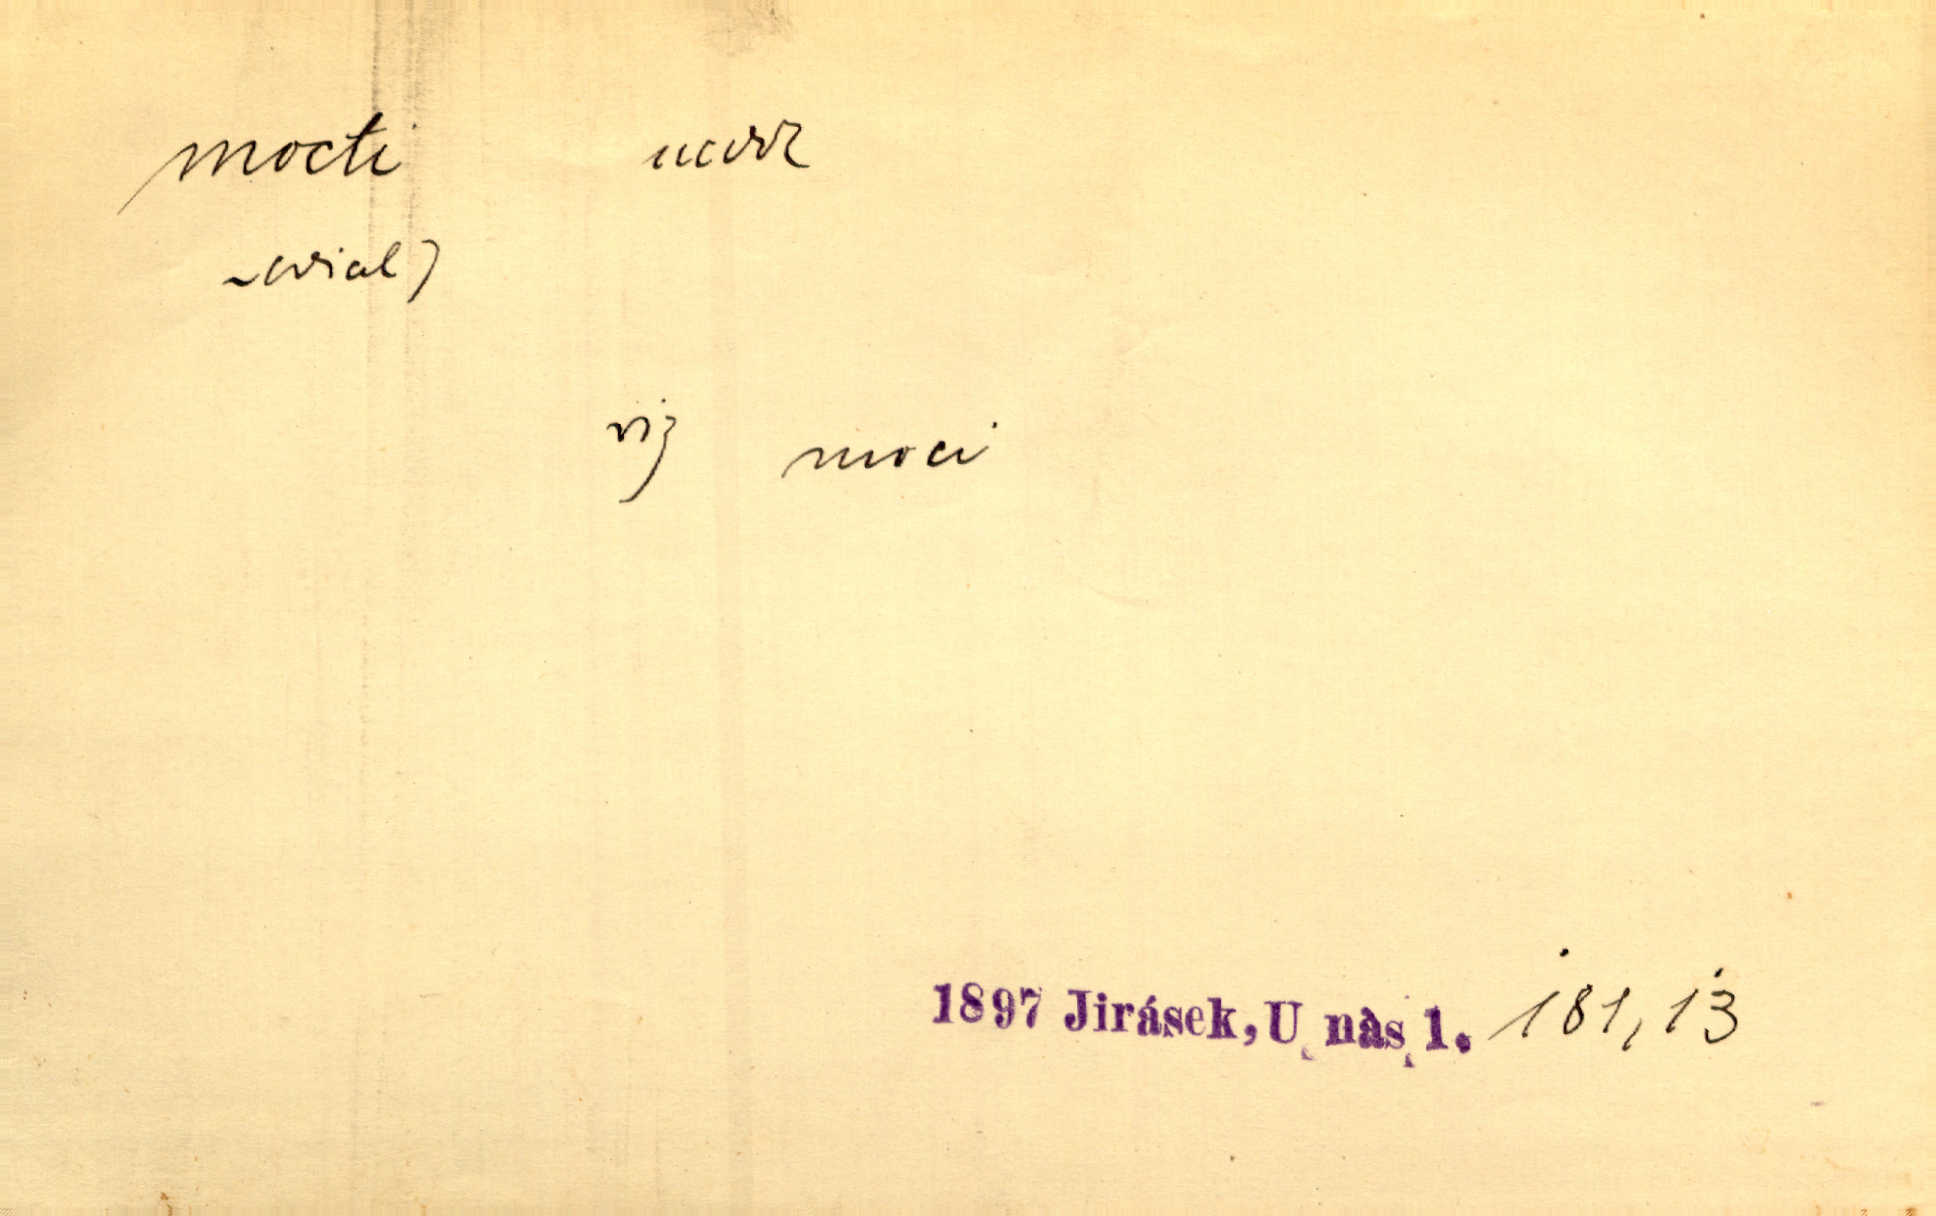 mocti
viz moci
1897 Jirásek, U nás 1. 181, 13